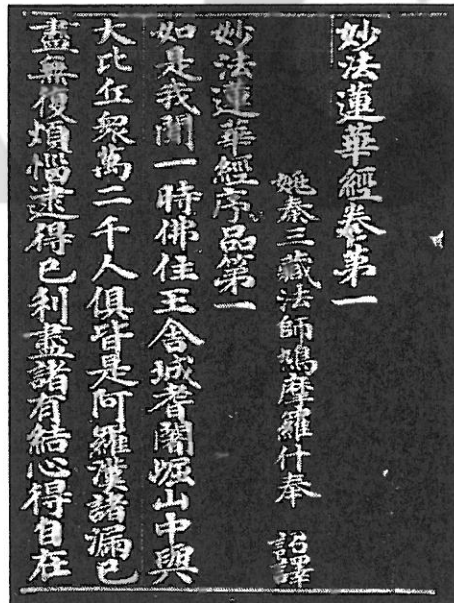 妙法蓮華經卷第一
姚秦三藏法師鳩摩羅什奉 詔譯
妙法蓮華經序品第一
如是我聞一時佛住王舍城耆闍崛山中與
大比丘衆萬二千人俱皆是阿羅漢諸漏已
盡無復煩惱逮得已利盡諸有結心得自在